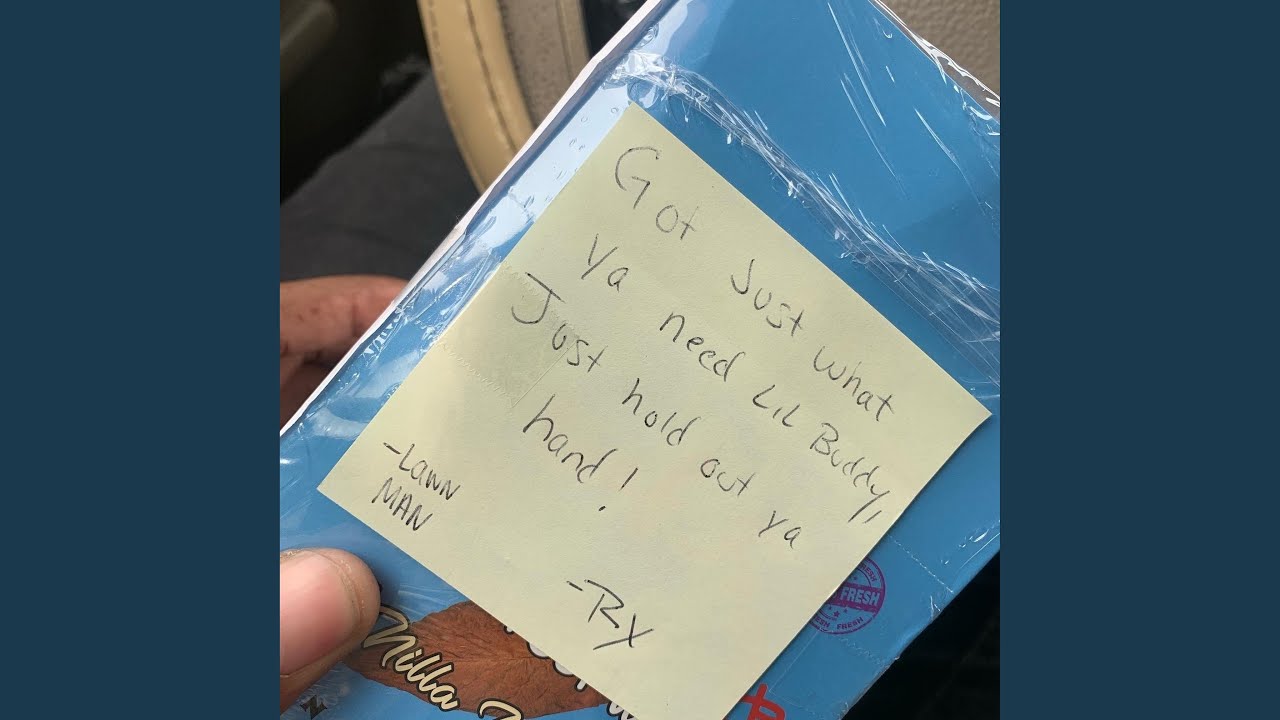 Got Just what
Ya need LiL Buddy,
Just hold out ya
hand!
-LAWN
MAN
-RX
FRESH
FRESH
Nilla